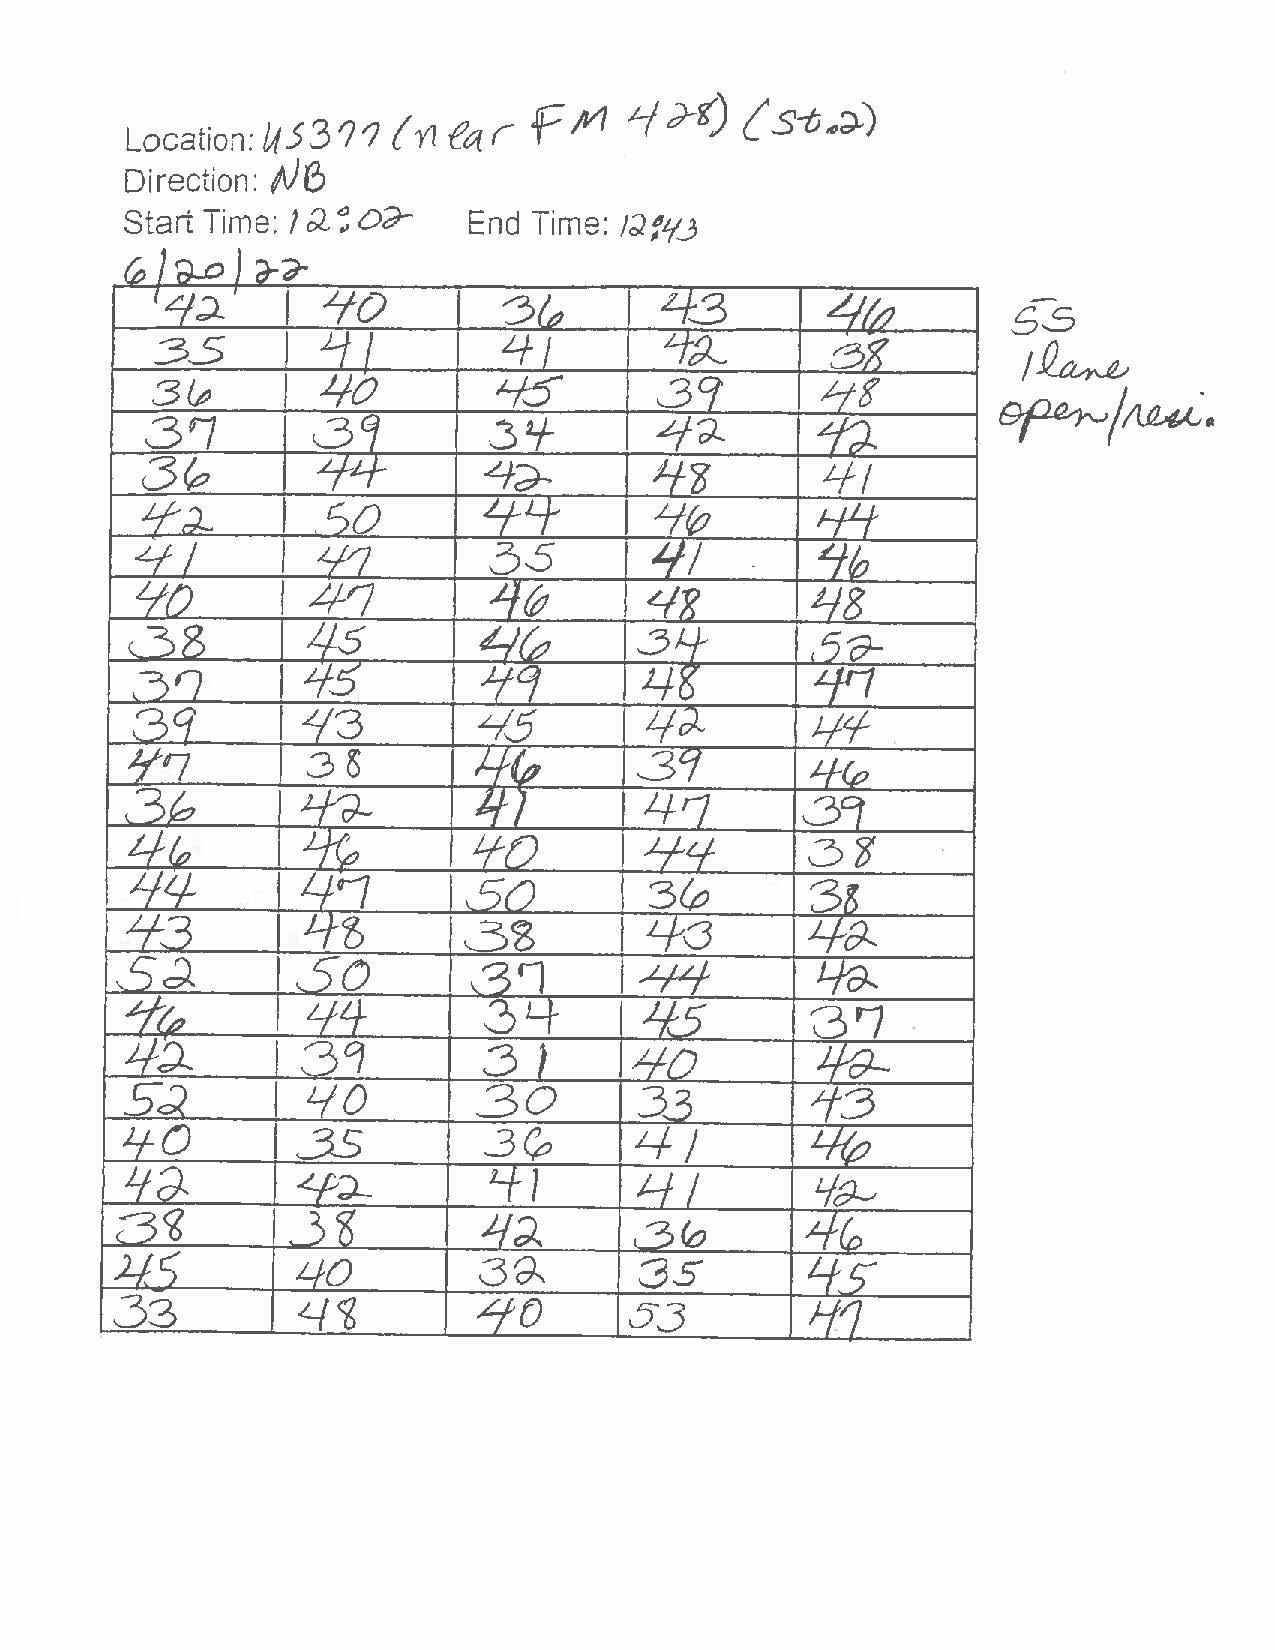 Location: US377 (near FM 428) (St.2)
Direction: NB
Start Time: 12:02 End Time: 12:43
6/20/22
42 40 36 43 46
35 41 41 42 38
36 40 45 39 48
37 39 34 42 42
36 44 42 48 41
42 50 44 46 44
41 47 35 41 46
40 47 46 48 48
38 45 46 34 52
37 45 49 48 47
39 43 45 42 44
47 38 46 39 46
36 42 41 47 39
46 46 40 44 38
44 47 50 36 38
43 48 38 43 42
52 50 37 44 42
46 44 34 45 37
42 39 31 40 42
52 40 30 33 43
40 35 36 41 46
42 42 41 41 42
38 38 42 36 46
45 40 32 35 45
33 48 40 53 47
55
1 lane
open/resi.